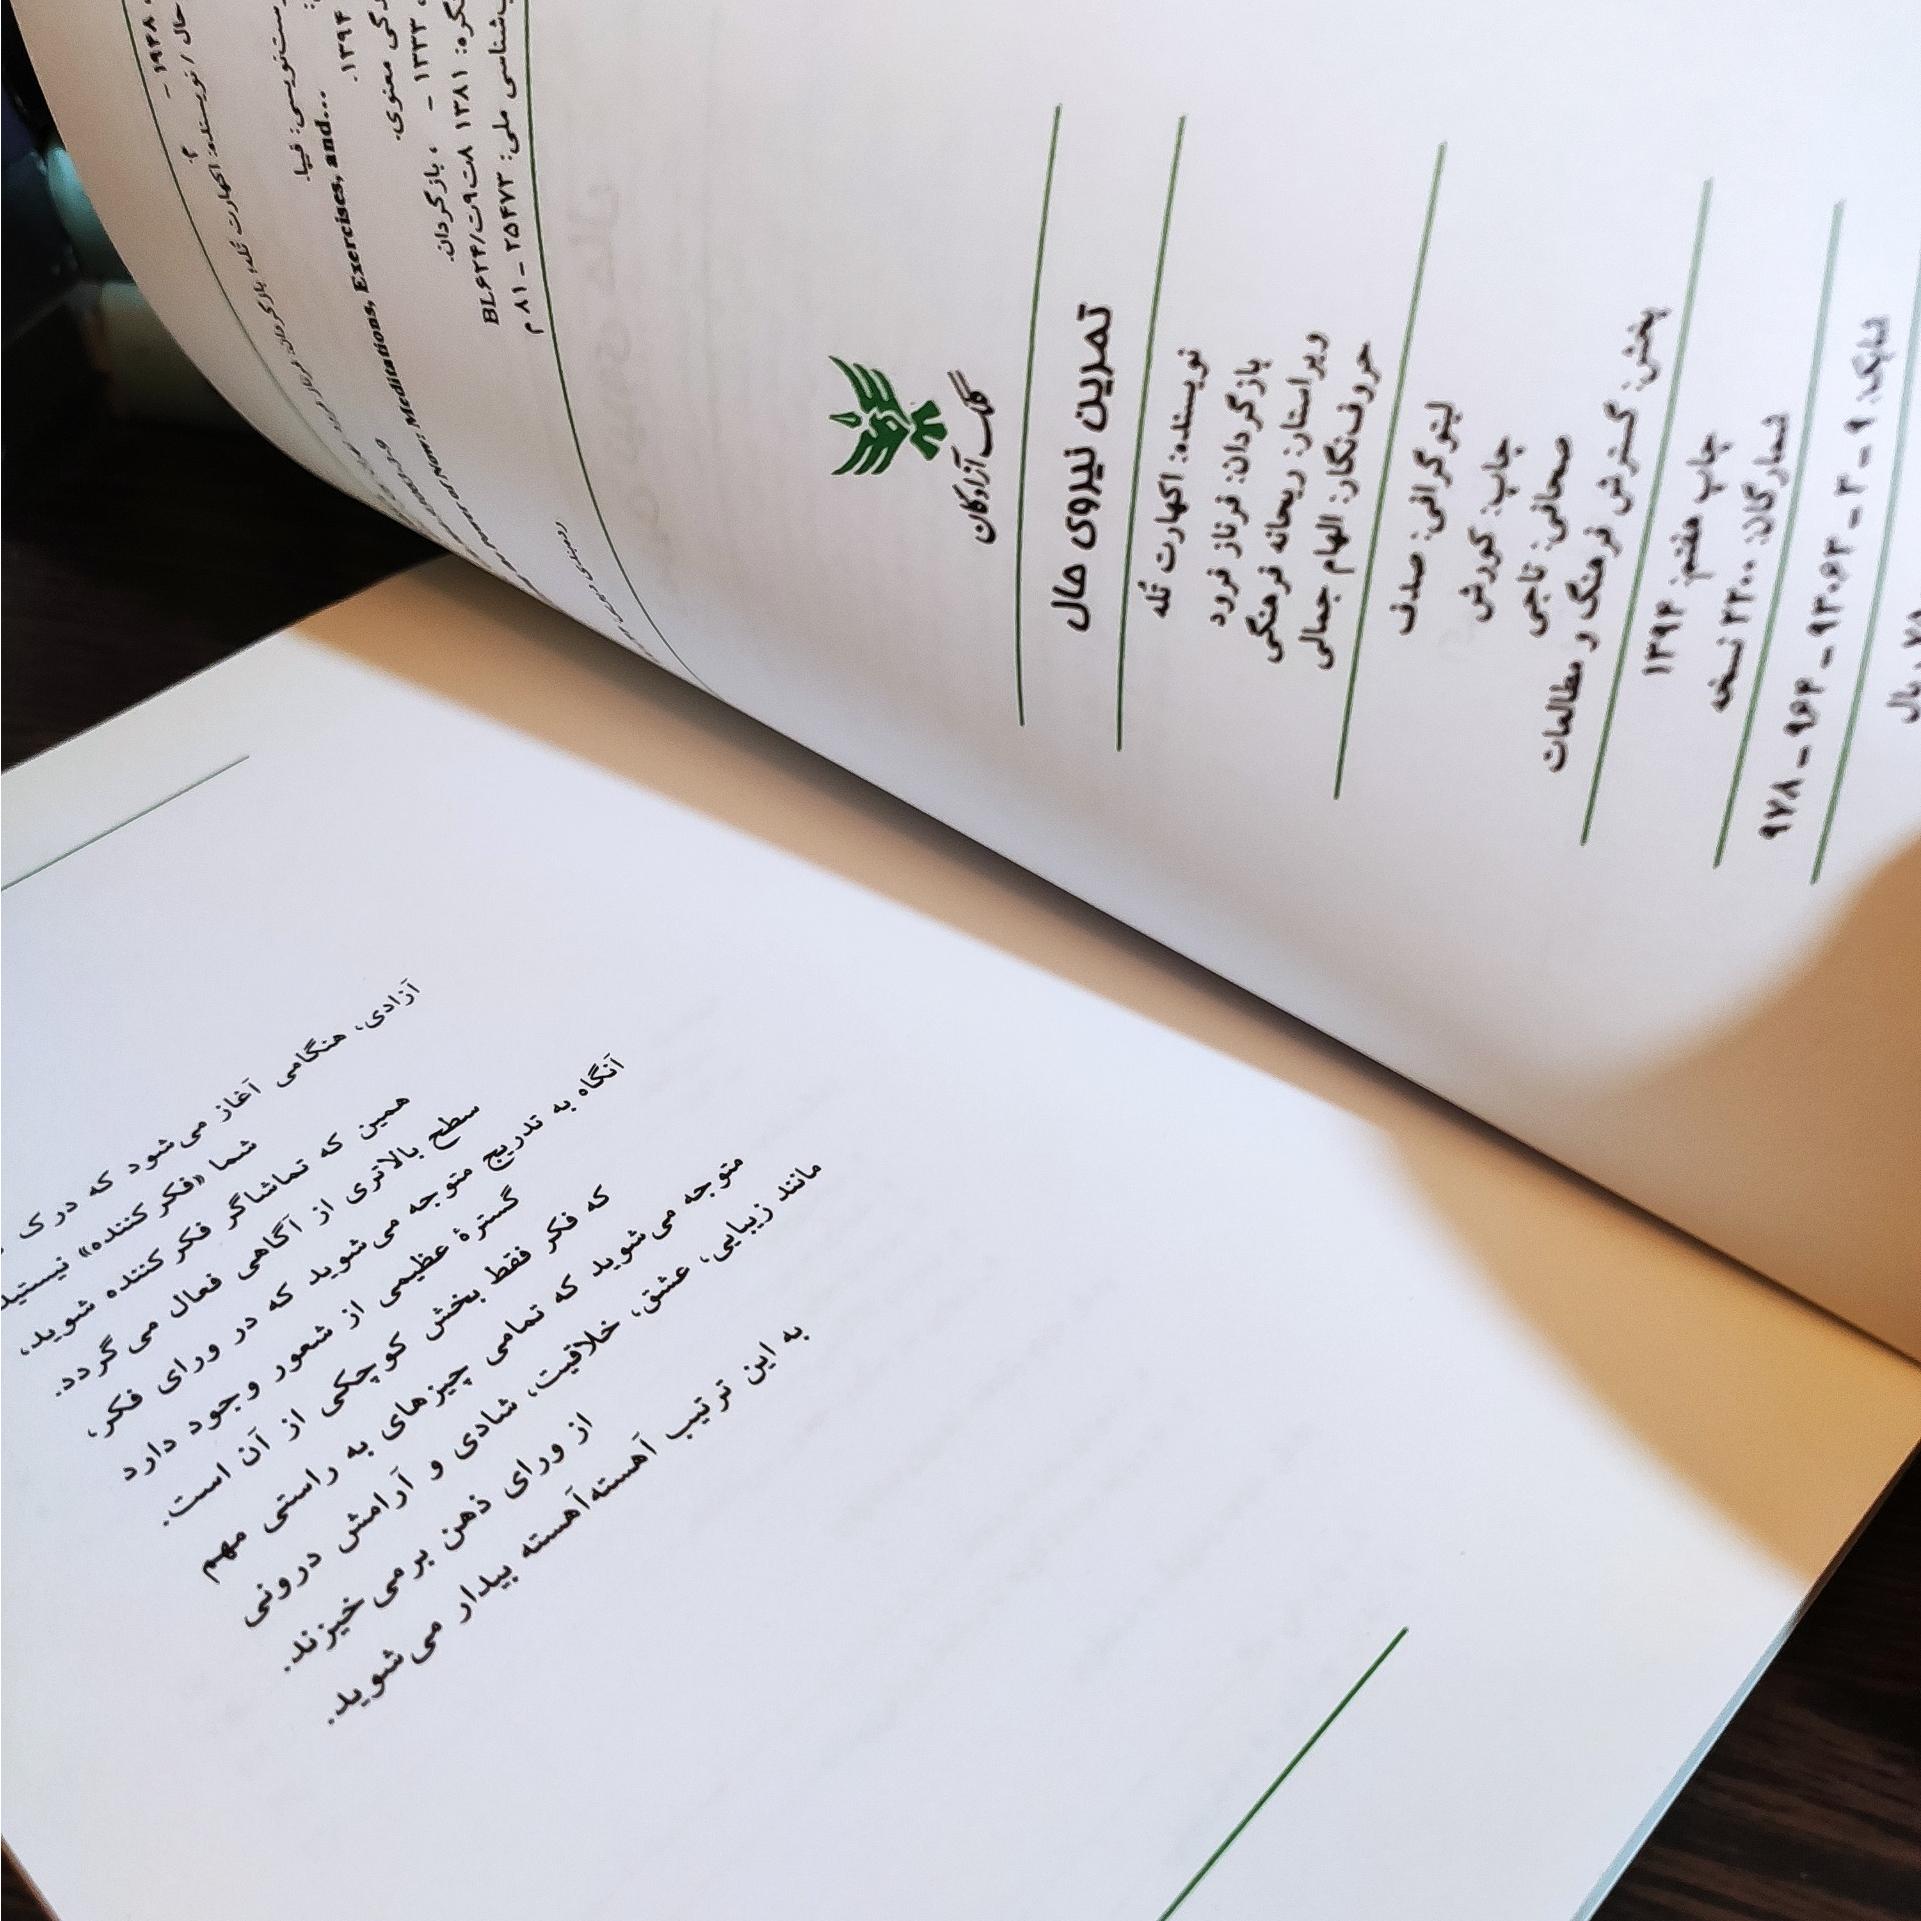 ۱۹۴۸ -
حال / نویسنده: اکهارت تُله؛ بازگردان: فرناز فرود
م.
فیپا.
and...
Power of Now: Meditations, Exercises,
۱۳۹۴.
معنوی.
۱۳۳۳ - ، بازگردان.
کنگره: ۱۳۸۱ ۸ت۹ت/BL۶۲۴
ملی: ۲۵۴۷۳ - ۸۱ م
کلک آزادگان
تمرین نیروی حال
نویسنده: اکهارت تُله
بازگردان: فرناز فرود
ویراستار: ریحانه فرهنگی
حروف‌نگار: الهام جمالی
لیتوگرافی: صدف
چاپ: کوروش
صحافی: تاجی
پخش: گسترش فرهنگ و مطالعات
چاپ هفتم: ۱۳۹۴
شمارگان: ۲۲۰۰ نسخه
شابک: ۹ - ۳ - ۹۳۰۶۳ - ۹۶۴ - ۹۷۸
ریال
آزادی، هنگامی آغاز می‌شود که درک
شما «فکر کننده» نیستید
همین که تماشاگر فکر کننده شوید،
سطح بالاتری از آگاهی فعال می‌گردد.
آنگاه به تدریج متوجه می‌شوید که در ورای فکر،
گسترهٔ عظیمی از شعور وجود دارد
که فکر فقط بخش کوچکی از آن است.
متوجه می‌شوید که تمامی چیزهای به راستی مهم
مانند زیبایی، عشق، خلاقیت، شادی و آرامش درونی
از ورای ذهن برمی‌خیزند.
به این ترتیب آهسته‌آهسته بیدار می‌شوید.